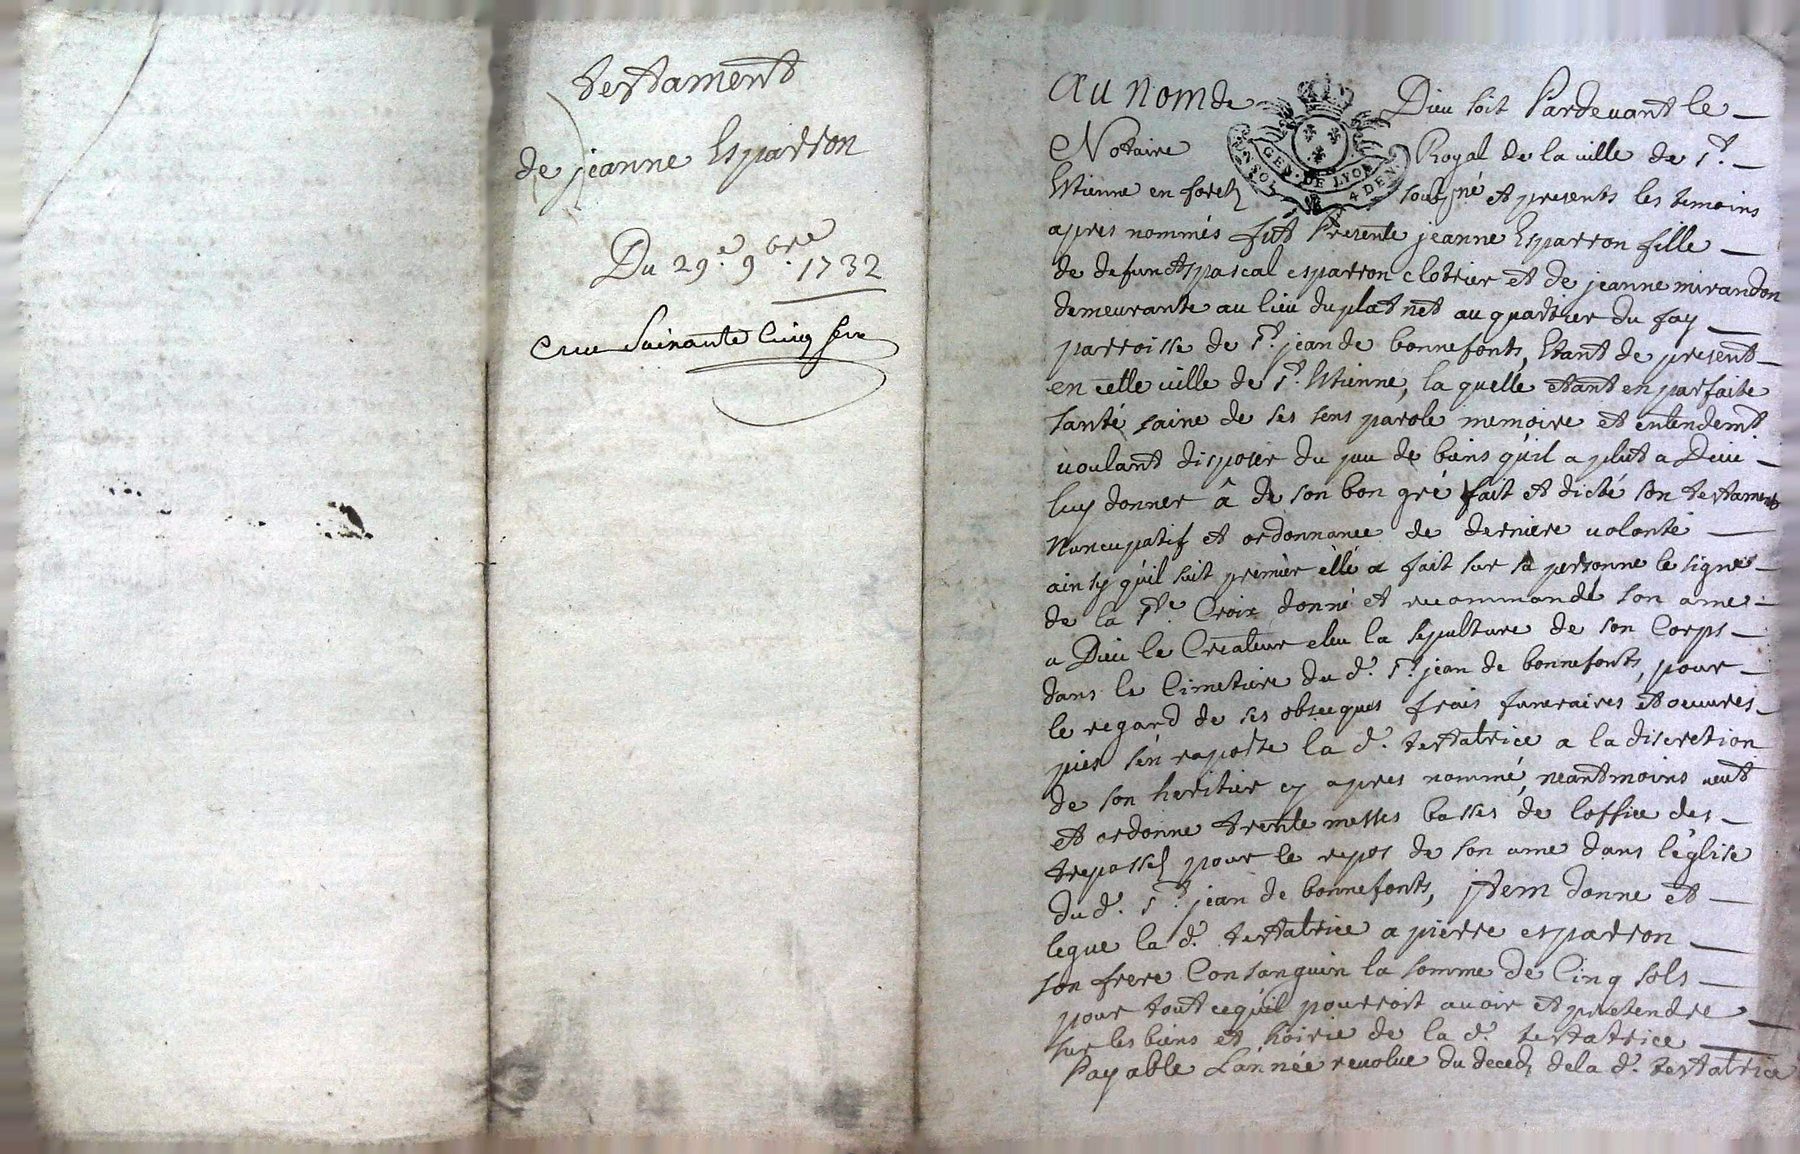 testament
de jeanne Esparron
Du 29.e 9bre. 1732
Cinq
Au Nom de Dieu soit Pardevant le
Notaire Royal de la ville de St.
Estienne en forez soubsné et presents les temoins
apres nommés fut Presente jeanne Esparron fille
de defunct pascal esparron clotrier et de jeanne mirandon
demeurante au lieu du plat net au quartier du fay
parroisse de St. jean de bonnefonts, Etant de present
en cette ville de St. Estienne, la quelle etant en parfaite
santé saine de ses sens parole memoire et entendemt
voulant disposer du peu de biens qu'il a plut a Dieu
luy donner â de son bon gré fait et dicté son testament
Nuncupatif et ordonnance de derniere volonté
ainsy qu'il suit premièr èllé a fait sur sa personne le signe
de la Ste. Croix donné et recommandé son ame
a Dieu le Createur eleu la sepulture de son Corps
dans le Cimetiere du d. St. jean de bonnefonts, pour
le regard de ses obsecques frais funeraires et oeuvres
pies s'en raporte la d. testatrice a la discretion
de son heritier cy apres nommé, neantmoins veut
et ordonne trente messes basses de l'office des
trepassez pour le repos de son ame dans l'église
du d. St. jean de bonnefonts, jtem donne et
legue la d. testatrice a pierre esparron
son frere Consanguin la somme de Cinq sols
pour tout ce qu'il pourroit avoir et pretendre
sur les biens et hoirie de la d. testatrice
Payable L'année revolue du decez de la d. testatrice
GEN. DE LYON
4 DEN.